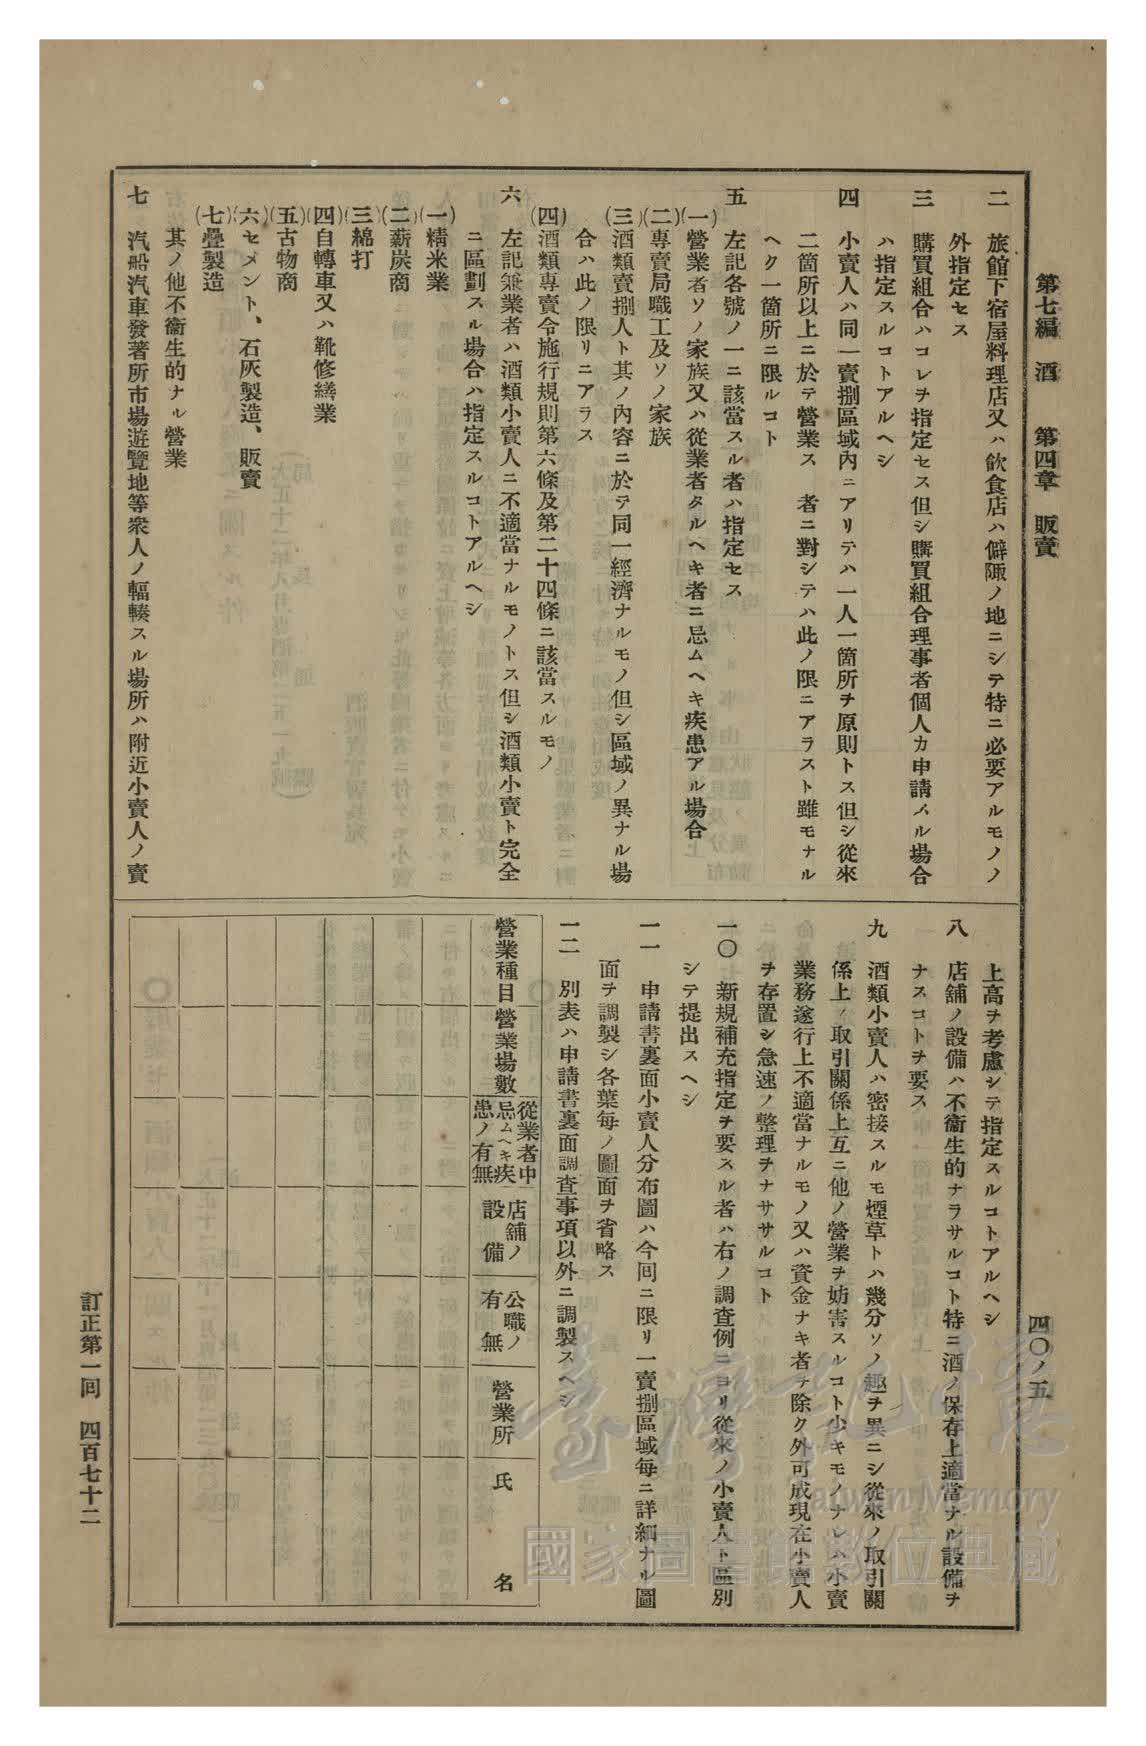 第七編　酒　第四章　販賣
四〇ノ五
二　旅館下宿屋料理店又ハ飮食店ハ僻陬ノ地ニシテ特ニ必要アルモノノ
外指定セス
三　購買組合ハコレヲ指定セス但シ購買組合理事者個人カ申請スル場合
ハ指定スルコトアルヘシ
四　小賣人ハ同一賣捌區域內ニアリテハ一人一箇所ヲ原則トス但シ從來
二箇所以上ニ於テ營業ス　者ニ對シテハ此ノ限ニアラスト雖モナル
ヘク一箇所ニ限ルコト
五　左記各號ノ一ニ該當スル者ハ指定セス
(一)營業者ソノ家族又ハ從業者タルヘキ者ニ忌ムヘキ疾患アル場合
(二)專賣局職工及ソノ家族
(三)酒類賣捌人ト其ノ內容ニ於テ同一經濟ナルモノ但シ區域ノ異ナル場
合ハ此ノ限リニアラス
(四)酒類專賣令施行規則第六條及第二十四條ニ該當スルモノ
六　左記兼業者ハ酒類小賣人ニ不適當ナルモノトス但シ酒類小賣ト完全
ニ區劃スル場合ハ指定スルコトアルヘシ
(一)精米業
(二)薪炭商
(三)綿打
(四)自轉車又ハ靴修繕業
(五)古物商
(六)セメント、石灰製造、販賣
(七)疊製造
其ノ他不衞生的ナル營業
七　汽船汽車發著所市場遊覽地等衆人ノ輻輳スル場所ハ附近小賣人ノ賣
上高ヲ考慮シテ指定スルコトアルヘシ
八　店舖ノ設備ハ不衞生的ナラサルコト特ニ酒ノ保存上適當ナル設備ヲ
ナスコトヲ要ス
九　酒類小賣人ハ密接スルモ煙草トハ幾分ソノ趣ヲ異ニシ從來ノ取引關
係上ノ取引關係上互ニ他ノ營業ヲ妨害スルコト少キモノナレハ小賣
業務遂行上不適當ナルモノ又ハ資金ナキ者ヲ除ク外可成現在小賣人
ヲ存置シ急速ノ整理ヲナササルコト
一〇　新規補充指定ヲ要スル者ハ右ノ調査例ニヨリ從來ノ小賣人ト區別
シテ提出スヘシ
一一　申請書裏面小賣人分布圖ハ今回ニ限リ一賣捌區域每ニ詳細ナル圖
面ヲ調製シ各葉每ノ圖面ヲ省略ス
一二　別表ハ申請書裏面調査事項以外ニ調製スヘシ
營業種目
營業場數
從業者中
忌ムヘキ疾
患ノ有無
店舖ノ
設備
公職ノ
有無
營業所
氏名
訂正第一回　四百七十二
臺灣記憶
Taiwan Memory
國家圖書館數位典藏